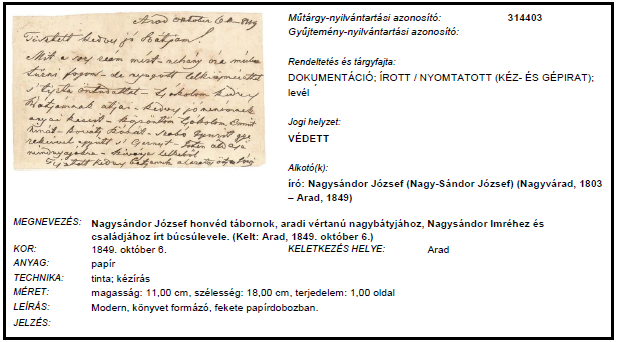 Arad október 6án 1849
Tisztelt kedves jó Bátyám!
Mit a sors reám mért – néhány óra múlva
tűrni fogom – de nyugott lelkiismerettel
s tiszta öntudattal –
Bátyámnak atyai – kedves jó nénémnek
anyai kezeit –
Műtárgy-nyilvántartási azonosító: 314403
Gyűjtemény-nyilvántartási azonosító:
Rendeltetés és tárgyfajta:
DOKUMENTÁCIÓ; ÍROTT / NYOMTATOTT (KÉZ- ÉS GÉPIRAT);
levél
Jogi helyzet:
VÉDETT
Alkotó(k):
író: Nagysándor József (Nagy-Sándor József) (Nagyvárad, 1803
– Arad, 1849)
MEGNEVEZÉS: Nagysándor József honvéd tábornok, aradi vértanú nagybátyjához, Nagysándor Imréhez és
családjához írt búcsúlevele. (Kelt: Arad, 1849. október 6.)
KOR: 1849. október 6. KELETKEZÉS HELYE: Arad
ANYAG: papír
TECHNIKA: tinta; kézírás
MÉRET: magasság: 11,00 cm, szélesség: 18,00 cm, terjedelem: 1,00 oldal
LEÍRÁS: Modern, könyvet formázó, fekete papírdobozban.
JELZÉS: